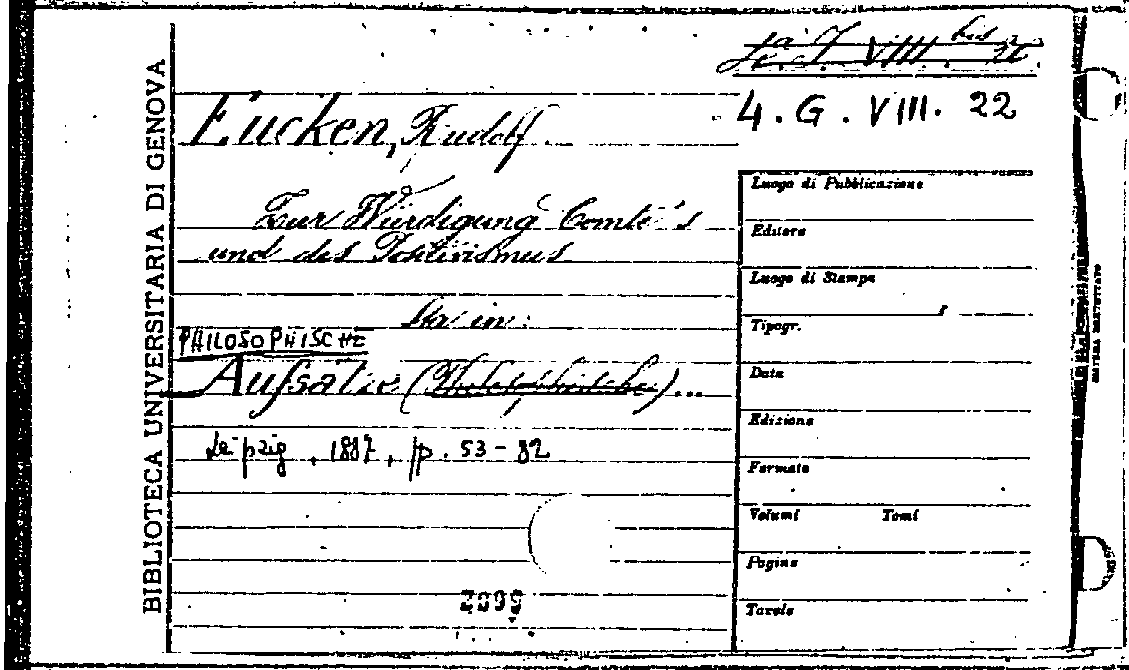 BIBLIOTECA UNIVERSITARIA DI GENOVA
VIII. bis
4. G. VIII. 22
Eucken, Rudolf.
Zur Würdigung Comte's
und des Positivismus
Sta in:
PHILOSOPHISCHE
Aufsätze (Philosophische)...
Leipzig, 1887, pp. 53-82
Luogo di Pubblicazione
Editore
Luogo di Stampa
Tipogr.
Data
Edizione
Formato
Volumi Tomi
Pagine
Tavole